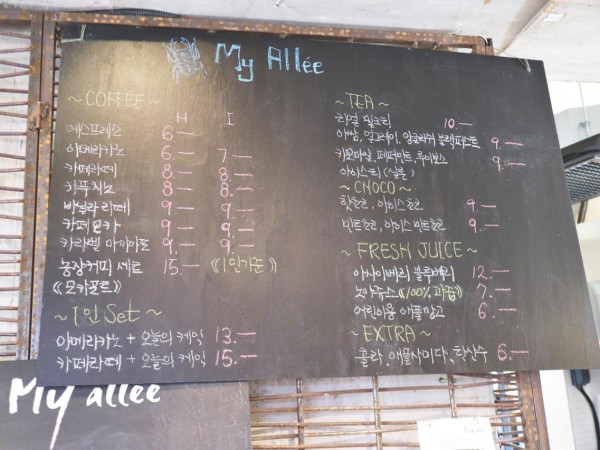 My Allée
~ COFFEE ~
H I
에스프레소 6.—
아메리카노 6.— 7.—
카페라떼 8.— 8.—
카푸치노 8.— 8.—
바닐라 라떼 9.— 9.—
카페모카 9.— 9.—
카라멜 마끼아또 9.— 9.—
농장커피 세트 15.— 《1인기준》
《모카포트》
~ 1인 Set ~
아메리카노 + 오늘의 케익 13.—
카페라떼 + 오늘의 케익 15.—
~ TEA ~
밀크티 10.—
아쌈, 얼그레이, 잉글리쉬 블랙퍼스트 9.—
캬모마일, 페퍼민트, 루이보스 9.—
아이스티
~ CHOCO ~
핫초코, 아이스초코 9.—
민트초코, 아이스 민트초코 9.—
~ FRESH JUICE ~
아사이베리 블루베리 12.—
《100% 과즙》 7.—
어린이용 애플망고 6.—
~ EXTRA ~
콜라, 애플사이다, 탄산수 6.—
My allée